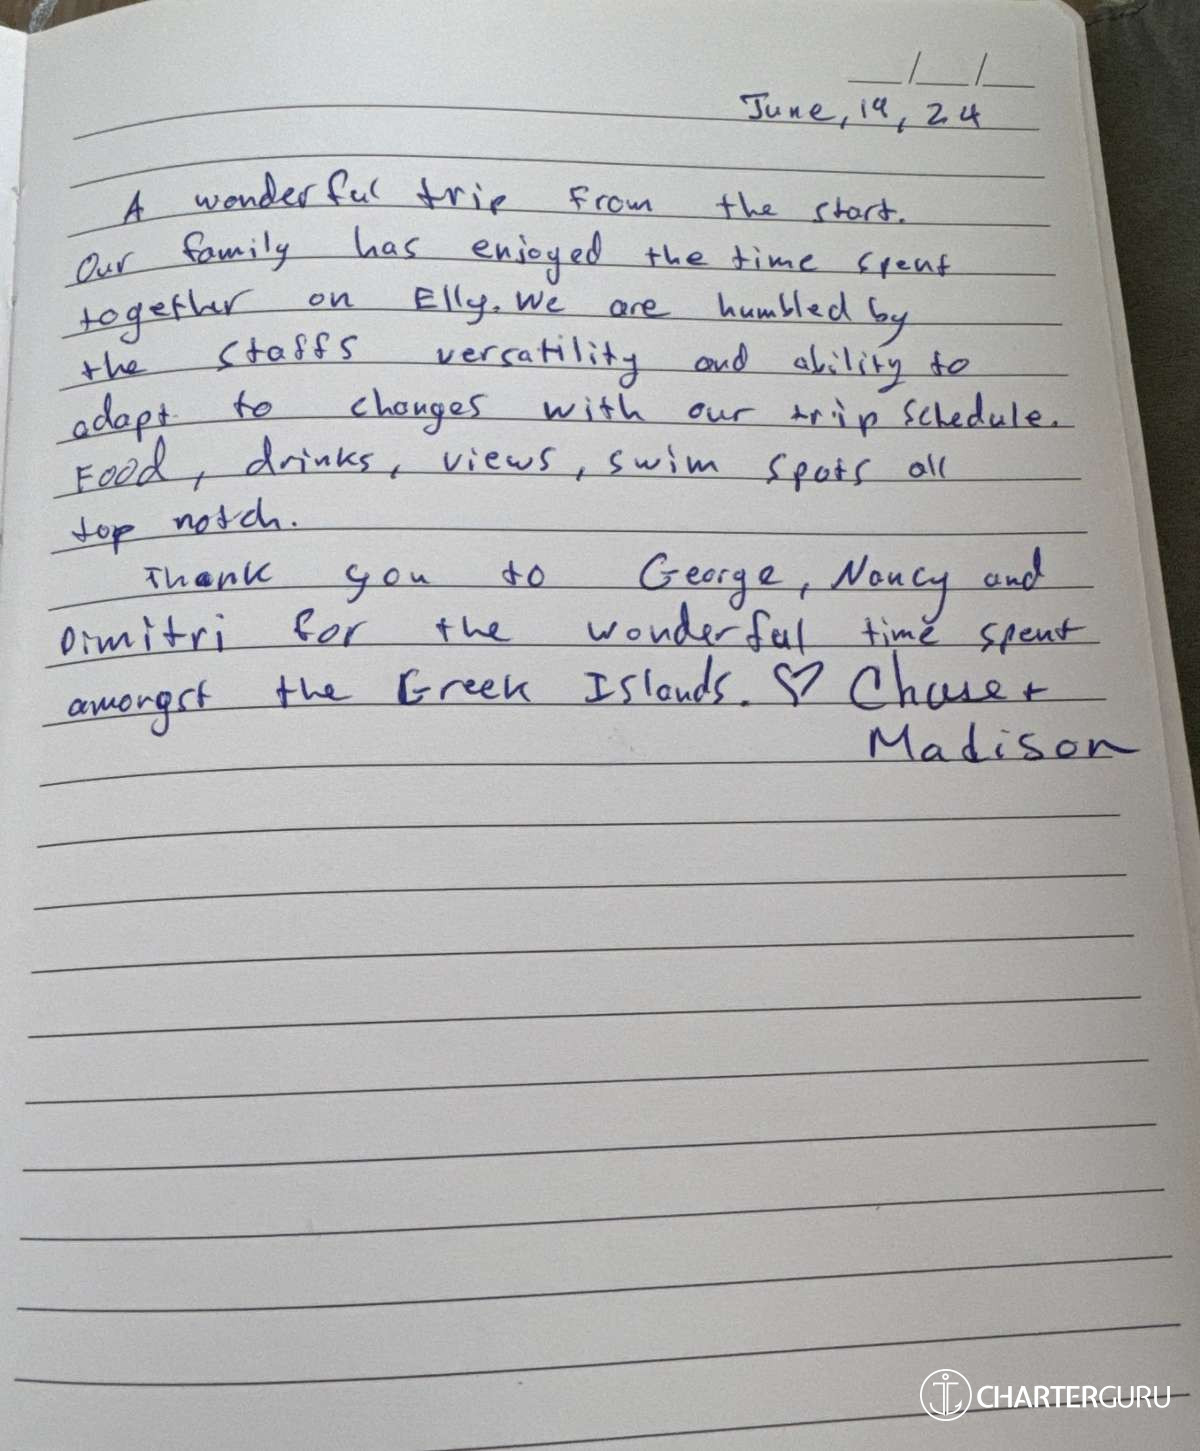 __/__/__
June, 19, 24
A wonderful trip from the start.
Our family has enjoyed the time spent
together on Elly. We are humbled by
the staffs versatility and ability to
adapt to changes with our trip schedule.
Food, drinks, views, swim spots all
top notch.
Thank you to George, Nancy and
Dimitri for the wonderful time spent
amongst the Greek Islands. ♡ Chase +
Madison
CHARTERGURU